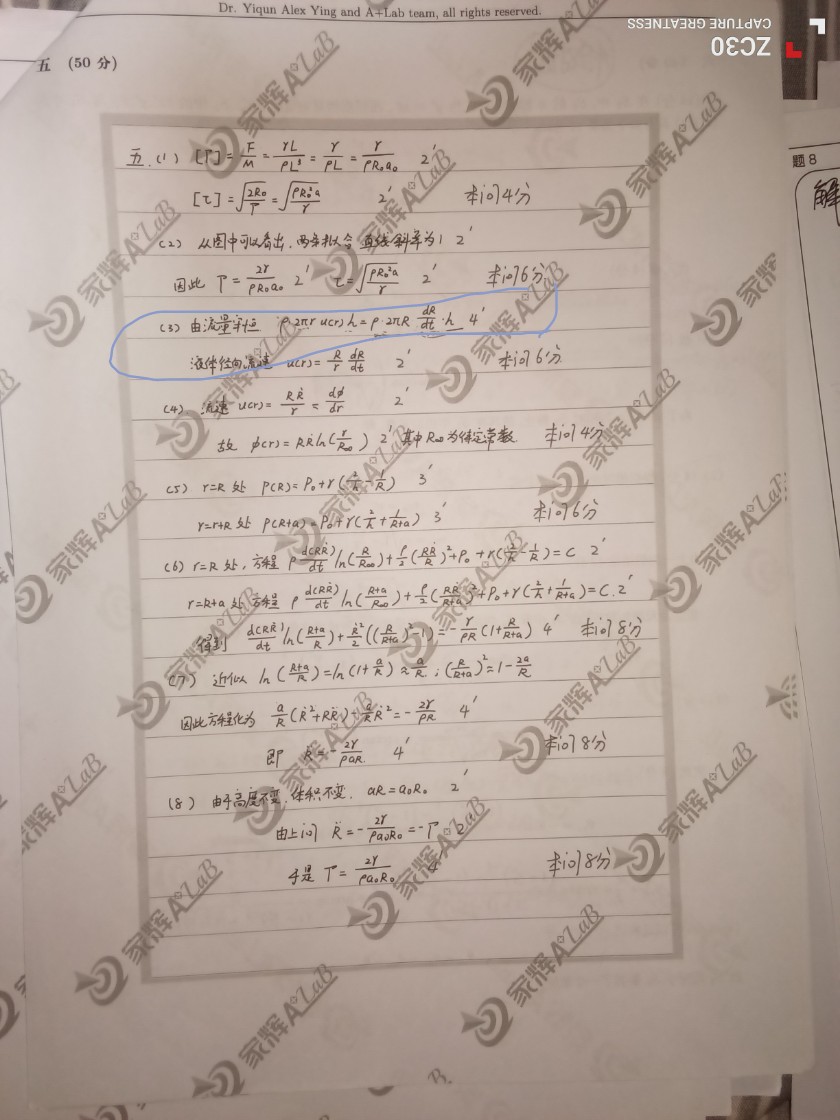 Dr. Yiqun Alex Ying and A+Lab team, all rights reserved.
ZC30
CAPTURE GREATNESS
五 (50 分)
题8
解
五.(1) [Γ] = F/M = γL/ρL³ = γ/ρL = γ/ρR₀a₀ 2'
[τ] = √(2R₀/Γ) = √(ρR₀²a/γ) 2' 本问4分
(2) 从图中可以看出,两条拟合直线斜率为1 2'
因此 Γ = 2γ/ρR₀a₀ 2' τ = √(ρR₀²a/γ) 2' 本问6分
(3) 由流量守恒 ρ·2πr u(r) h = ρ·2πR dR/dt·h 4'
液体径向流速 u(r) = R/r dR/dt 2' 本问6分
(4) 流速 u(r) = RṘ/r = dφ/dr 2'
故 φ(r) = RṘ ln(r/R∞) 2' 其中 R∞ 为待定常数. 本问4分
(5) r=R 处 P(R) = P₀+γ(2/h - 1/R) 3'
r=r+R 处 P(R+a) = P₀+γ(2/h + 1/(R+a)) 3' 本问6分
(6) r=R 处, 方程 ρ d(RṘ)/dt ln(R/R∞) + ρ/2 (RṘ/R)² + P₀ + γ(2/h - 1/R) = C 2'
r=R+a 处 方程 ρ d(RṘ)/dt ln((R+a)/R∞) + ρ/2 (RṘ/(R+a))² + P₀ + γ(2/h + 1/(R+a)) = C. 2'
得到 d(RṘ)/dt ln((R+a)/R) + Ṙ²/2 ((R/(R+a))² - 1) = -γ/ρR (1 + R/(R+a)) 4' 本问8分
(7) 近似 ln((R+a)/R) = ln(1+a/R) ≈ a/R ; (R/(R+a))² = 1 - 2a/R
因此方程化为 a/R (Ṙ²+RR̈) - a/R Ṙ² = -2γ/ρR 4'
即 R̈ = -2γ/ρaR 4' 本问8分
(8) 由于高度不变,体积不变. aR = a₀R₀ 2'
由上问 R̈ = -2γ/ρa₀R₀ = -Γ 2'
于是 Γ = 2γ/ρa₀R₀ 4' 本问8分
家辉A+LaB